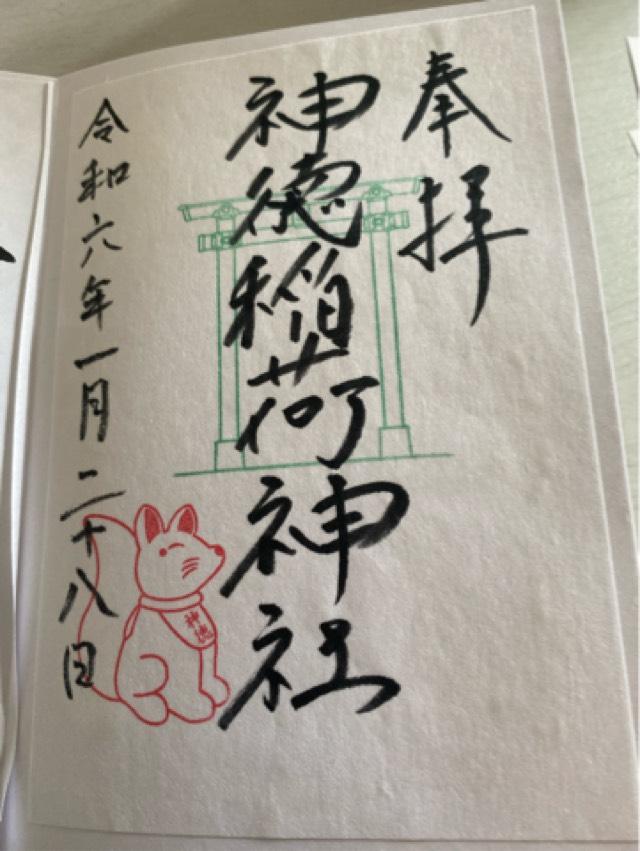 奉拝
神徳稲荷神社
令和六年一月二十八日
神徳